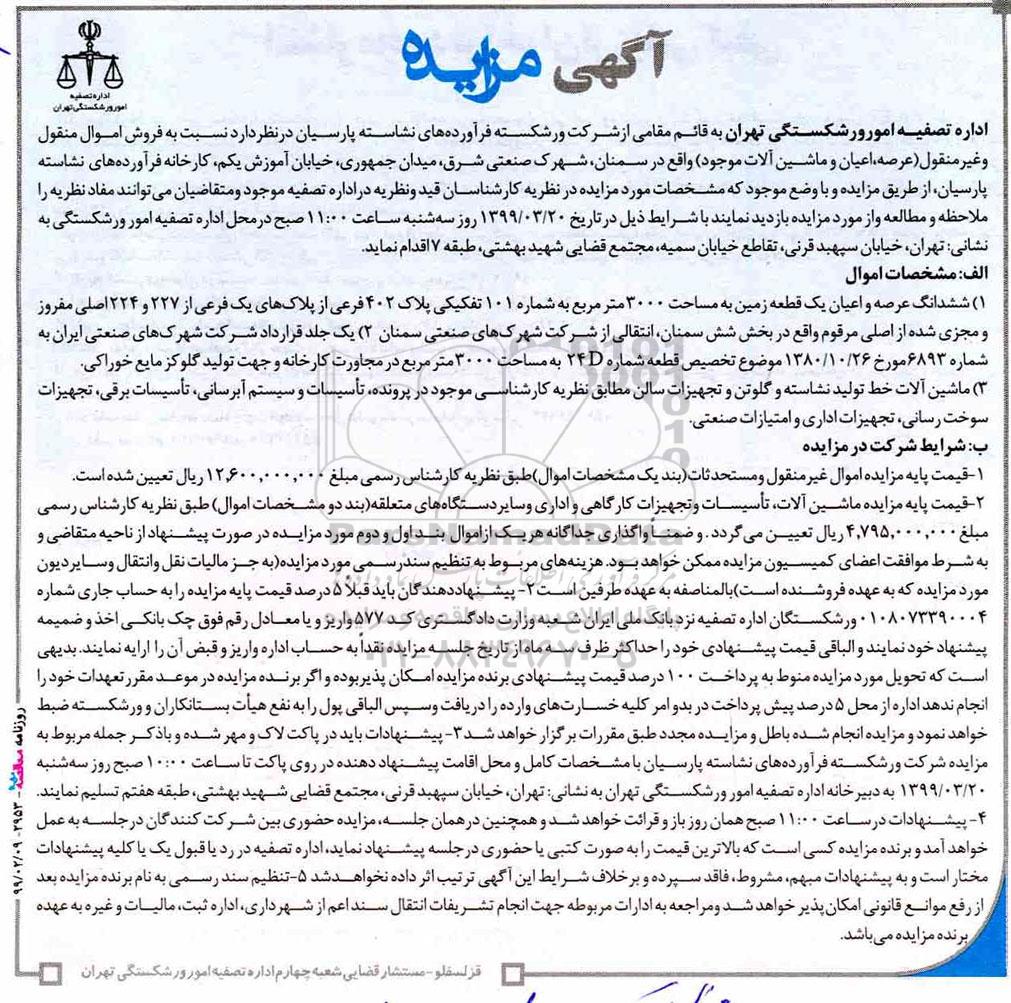 آگهی مزایده
اداره تصفیه
امور ورشکستگی تهران
اداره تصفیه امور ورشکستگی تهران به قائم مقامی از شرکت ورشکسته فرآورده‌های نشاسته پارسیان در نظر دارد نسبت به فروش اموال منقول
و غیر منقول (عرصه، اعیان و ماشین آلات موجود) واقع در سمنان، شهرک صنعتی شرق، میدان جمهوری، خیابان آموزش یکم، کارخانه فرآورده‌های نشاسته
پارسیان، از طریق مزایده و با وضع موجود که مشخصات مورد مزایده در نظریه کارشناسان قید و نظریه در اداره تصفیه موجود و متقاضیان می‌توانند مفاد نظریه را
ملاحظه و مطالعه و از مورد مزایده بازدید نمایند با شرایط ذیل در تاریخ ۱۳۹۹/۰۳/۲۰ روز سه‌شنبه ساعت ۱۱:۰۰ صبح در محل اداره تصفیه امور ورشکستگی به
نشانی: تهران، خیابان سپهبد قرنی، تقاطع خیابان سمیه، مجتمع قضایی شهید بهشتی، طبقه ۷ اقدام نماید.
الف: مشخصات اموال
۱) ششدانگ عرصه و اعیان یک قطعه زمین به مساحت ۳۰۰۰ متر مربع به شماره ۱۰۱ تفکیکی پلاک ۴۰۲ فرعی از پلاک‌های یک فرعی از ۲۲۷ و ۲۲۴ اصلی مفروز
و مجزی شده از اصلی مرقوم واقع در بخش شش سمنان، انتقالی از شرکت شهرک‌های صنعتی سمنان ۲) یک جلد قرارداد شرکت شهرک‌های صنعتی ایران به
شماره ۶۸۹۳ مورخ ۱۳۸۰/۱۰/۲۶ موضوع تخصیص قطعه شماره ۲۴D به مساحت ۳۰۰۰ متر مربع در مجاورت کارخانه و جهت تولید گلوکز مایع خوراکی.
۳) ماشین آلات خط تولید نشاسته و گلوتن و تجهیزات سالن مطابق نظریه کارشناسی موجود در پرونده، تأسیسات و سیستم آبرسانی، تأسیسات برقی، تجهیزات
سوخت رسانی، تجهیزات اداری و امتیازات صنعتی.
ب: شرایط شرکت در مزایده
۱- قیمت پایه مزایده اموال غیر منقول و مستحدثات (بند یک مشخصات اموال) طبق نظریه کارشناس رسمی مبلغ ۱۲,۶۰۰,۰۰۰,۰۰۰ ریال تعیین شده است.
۲- قیمت پایه مزایده ماشین آلات، تأسیسات و تجهیزات کارگاهی و اداری و سایر دستگاه‌های متعلقه (بند دو مشخصات اموال) طبق نظریه کارشناس رسمی
مبلغ ۴,۷۹۵,۰۰۰,۰۰۰ ریال تعیین می‌گردد. و ضمناً واگذاری جداگانه هر یک از اموال بند اول و دوم مورد مزایده در صورت پیشنهاد از ناحیه متقاضی و
به شرط موافقت اعضای کمیسیون مزایده ممکن خواهد بود. هزینه‌های مربوط به تنظیم سند رسمی مورد مزایده (به جز مالیات نقل و انتقال و سایر دیون
مورد مزایده که به عهده فروشنده است) بالمناصفه به عهده طرفین است ۲- پیشنهاد دهندگان باید قبلاً ۵ درصد قیمت پایه مزایده را به حساب جاری شماره
۰۱۰۸۰۷۳۳۹۰۰۰۴ ورشکستگان اداره تصفیه نزد بانک ملی ایران شعبه وزارت دادگستری کد ۵۷۷ واریز و یا معادل رقم فوق چک بانکی اخذ و ضمیمه
پیشنهاد خود نمایند و الباقی قیمت پیشنهادی خود را حداکثر ظرف سه ماه از تاریخ جلسه مزایده نقداً به حساب اداره واریز و قبض آن را ارایه نمایند. بدیهی
است که تحویل مورد مزایده منوط به پرداخت ۱۰۰ درصد قیمت پیشنهادی برنده مزایده امکان پذیر بوده و اگر برنده مزایده در موعد مقرر تعهدات خود را
انجام ندهد اداره از محل ۵ درصد پیش پرداخت در بدو امر کلیه خسارت‌های وارده را دریافت و سپس الباقی پول را به نفع هیأت بستانکاران و ورشکسته ضبط
خواهد نمود و مزایده انجام شده باطل و مزایده مجدد طبق مقررات برگزار خواهد شد ۳- پیشنهادات باید در پاکت لاک و مهر شده و با ذکر جمله مربوط به
مزایده شرکت ورشکسته فرآورده‌های نشاسته پارسیان با مشخصات کامل و محل اقامت پیشنهاد دهنده در روی پاکت تا ساعت ۱۰:۰۰ صبح روز سه‌شنبه
۱۳۹۹/۰۳/۲۰ به دبیرخانه اداره تصفیه امور ورشکستگی تهران به نشانی: تهران، خیابان سپهبد قرنی، مجتمع قضایی شهید بهشتی، طبقه هفتم تسلیم نمایند.
۴- پیشنهادات در ساعت ۱۱:۰۰ صبح همان روز باز و قرائت خواهد شد و همچنین در همان جلسه، مزایده حضوری بین شرکت کنندگان در جلسه به عمل
خواهد آمد و برنده مزایده کسی است که بالاترین قیمت را به صورت کتبی یا حضوری در جلسه پیشنهاد نماید، اداره تصفیه در رد یا قبول یک یا کلیه پیشنهادات
مختار است و به پیشنهادات مبهم، مشروط، فاقد سپرده و برخلاف شرایط این آگهی ترتیب اثر داده نخواهد شد ۵- تنظیم سند رسمی به نام برنده مزایده بعد
از رفع موانع قانونی امکان پذیر خواهد شد و مراجعه به ادارات مربوطه جهت انجام تشریفات انتقال سند اعم از شهرداری، اداره ثبت، مالیات و غیره به عهده
برنده مزایده می‌باشد.
قزلسفلو - مستشار قضایی شعبه چهارم اداره تصفیه امور ورشکستگی تهران
روزنامه مناقصه - ۲۹۵۳ - ۹۹/۰۲/۰۹
ParsNamadData
پایگاه اطلاع رسانی مناقصه و مزایده
۰۲۱-۸۸۳۴۹۶۷۰-۵